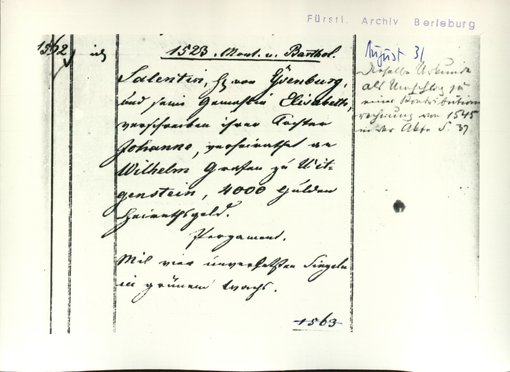 Fürstl. Archiv Berleburg
1562
1523. Mont. n. Barthol.
August 31
Salentin, H. von Ysenburg,
und seine Gemahlin Elisabeth,
verschreiben ihrer Tochter
Johanna, verheirathet an
Wilhelm Grafen zu Wit-
genstein, 4000 Gulden
Heirathsgeld.
Pergament.
Mit vier unverletzten Siegeln
in grünem Wachs.
1563
Dieselbe Urkunde
als Umschlag zu
einer
rechnung von 1545
in der Akte S. 37